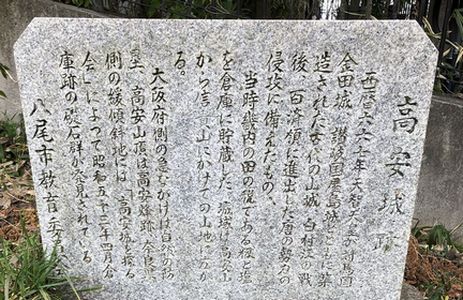 高安城跡
西暦六六七年天智天皇が対馬国
金田城、讃岐国屋島城とともに築
造された古代の山城。白村江の戦
後、百済領に進出した唐の勢力の
侵攻に備えたもの。
当時畿内の田の税である穀と塩
を倉庫に貯蔵した。城域は高安山
から信貴山にかけての山地
る。
大阪府側の急ながけは自然の
高安山頂は高安烽跡、奈良県
側の緩傾斜地には「高安城を探る
会」によって昭和五十三年四月倉
庫跡の礎石群が発見されている
八尾市教育委員会